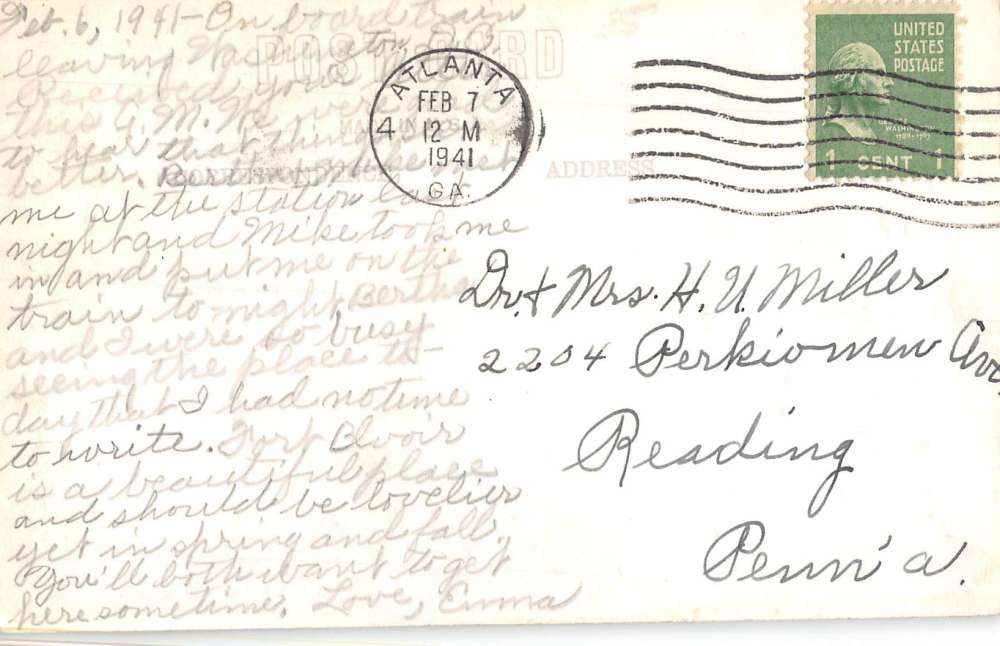 Feb. 6, 1941 - On board train
leaving Washington, D.C.
POST CARD
this A.M. We were
to hear that
better. Bertha & Mike met
CORRESPONDENCE
ADDRESS
me at the station last
night and Mike took me
in and put me on the
train to night Bertha
and I were so busy
seeing the place to-
day that I had no time
to write. Fort Blvoir
is a beautiful place
and should be lovelier
yet in spring and fall.
You'll both want to get
here sometime. Love, Emma
ATLANTA
4
FEB 7
12 M
1941
GA.
UNITED
STATES
POSTAGE
WASHINGTON
1 CENT 1
Dr. & Mrs. H. U. Miller
2204 Perkiomen Ave.
Reading
Penn'a.